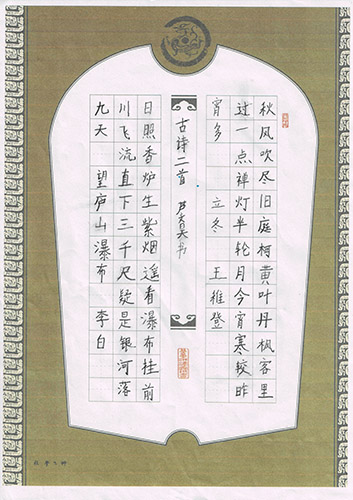 秋风吹尽旧庭柯黄叶丹枫客里
过一点禅灯半轮月今宵寒较昨
宵多 立冬 王稚登
古诗二首
日照香炉生紫烟遥看瀑布挂前
川飞流直下三千尺疑是银河落
九天 望庐山瀑布 李白